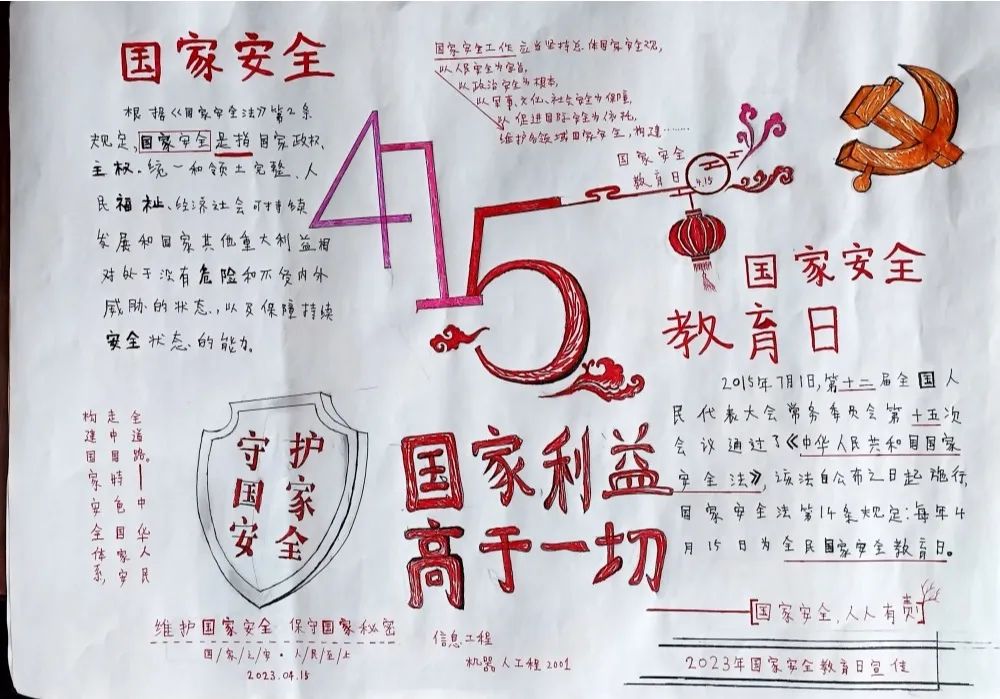 国家安全
根据《国家安全法》第2条
规定,国家安全是指国家政权、
主权、统一和领土完整、人
民福祉、经济社会可持续
发展和国家其他重大利益相
对处于没有危险和不受内外
威胁的状态,以及保障持续
安全状态的能力。
国家安全工作应当坚持总体国家安全观,
以人民安全为宗旨,
以政治安全为根本,
以军事、文化、社会安全为保障,
以促进国际安全为依托,
维护各领域国家安全,构建……
国家安全
教育日
4.15
415
国家安全
教育日
2015年7月1日,第十二届全国人
民代表大会常务委员会第十五次
会议通过了《中华人民共和国国家
安全法》,该法自公布之日起施行,
国家安全法第14条规定:每年4
月15日为全民国家安全教育日。
构建国家安全体系,
走中国特色国家安
全道路。
中华人民
守护
国家
安全
国家利益
高于一切
国家安全,人人有责
维护国家安全 保守国家秘密
国/家/之/安·人/民/至/上
2023.04.15
信息工程
机器人工程2001
2023年国家安全教育日宣传